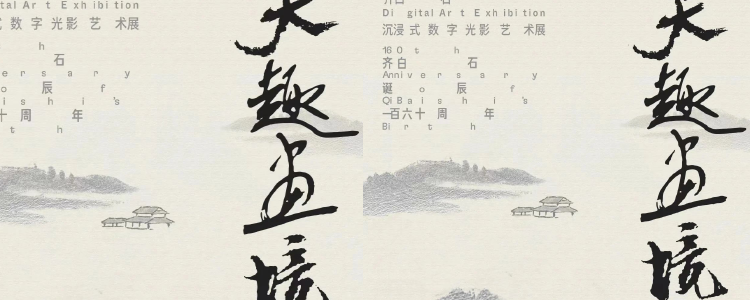 ital Art Exhibition
式数字光影艺术展
h
石
ersary
o 辰 f
ishi's
十周年
th
趣画境
Digital Art Exhibition
沉浸式数字光影艺术展
160th
齐白石
Anniversary
诞 o 辰 f
Qi Baishi's
一百六十周年
Birth
趣画境